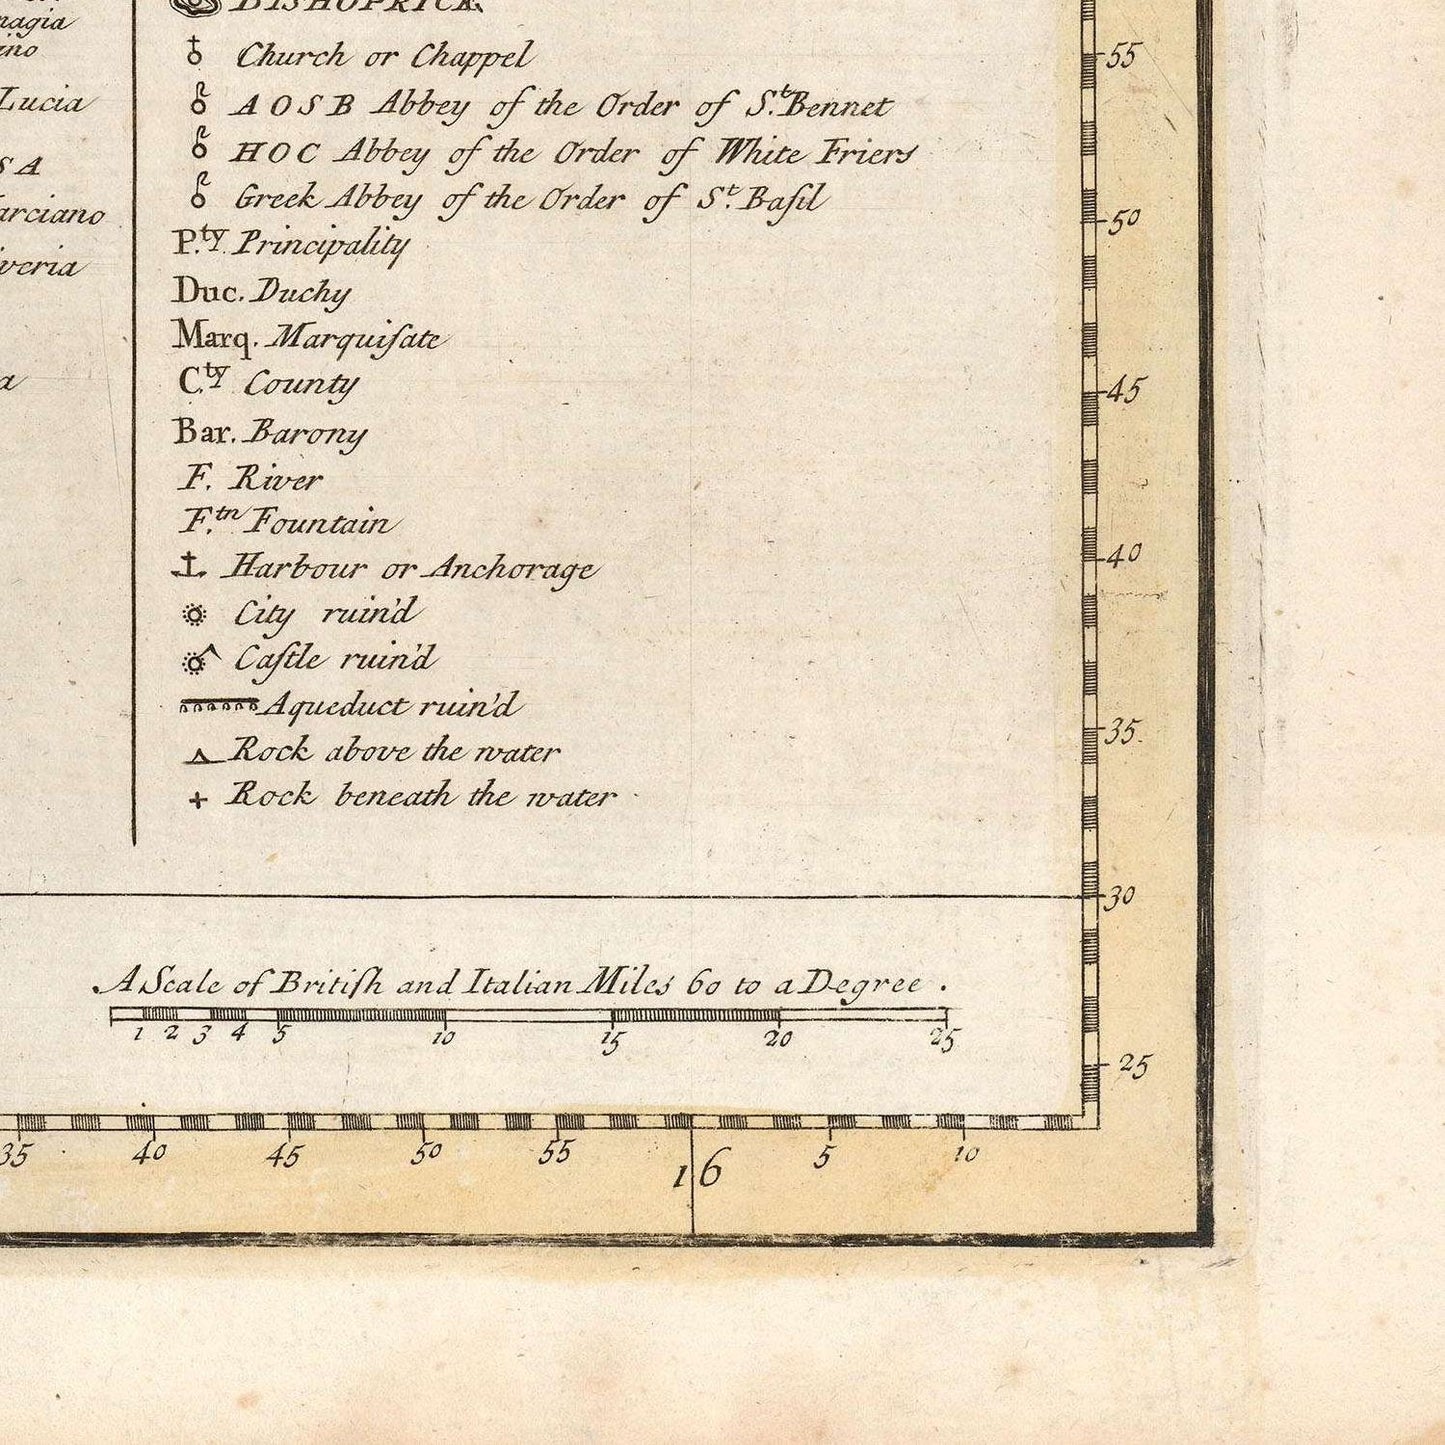 Lucia
SA
arciano
veria
a
BISHOPRICK
Church or Chappel
A O S B Abbey of the Order of S.t Bennet
HOC Abbey of the Order of White Friers
Greek Abbey of the Order of S.t Baſil
P.ty Principality
Duc. Duchy
Marq. Marquiſate
C.ty County
Bar. Barony
F. River
F.tn Fountain
Harbour or Anchorage
City ruin'd
Caſtle ruin'd
Aqueduct ruin'd
Rock above the water
Rock beneath the water
A Scale of Britiſh and Italian Miles 60 to a Degree.
1 2 3 4 5 10 15 20 25
55
50
45
40
35
30
25
35 40 45 50 55 16 5 10